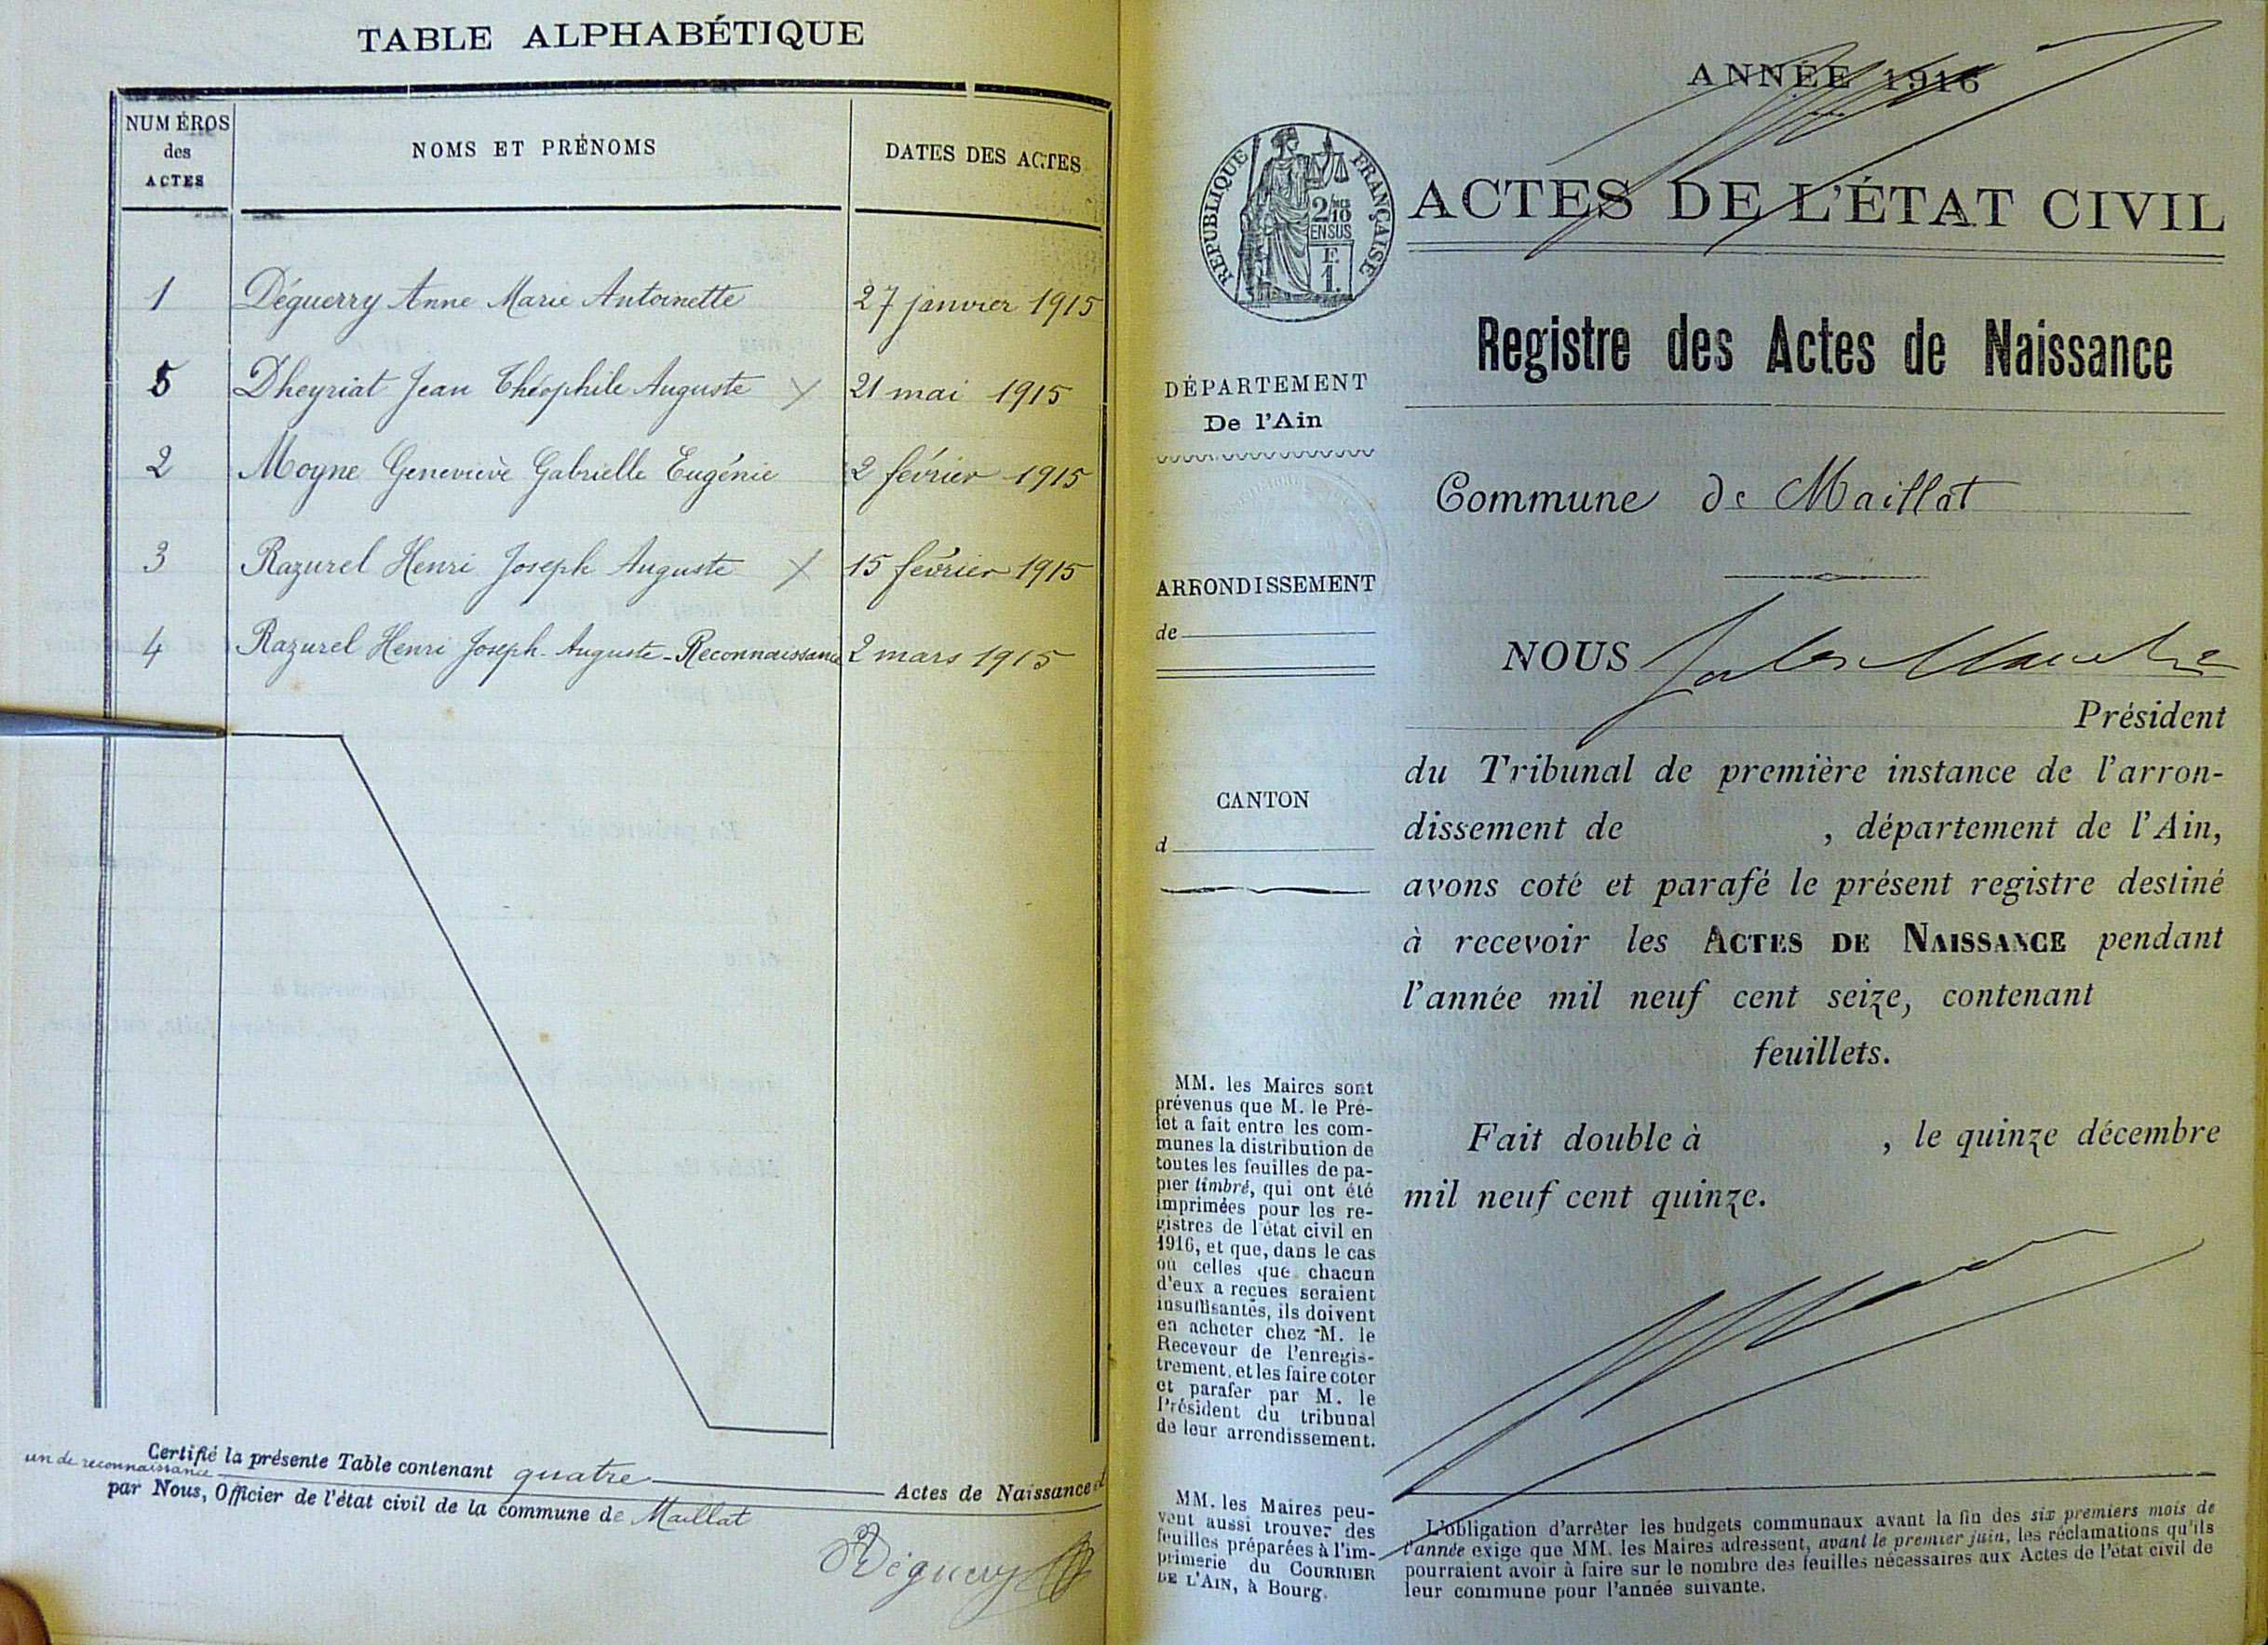 TABLE ALPHABÉTIQUE
NUMÉROS
des
ACTES
NOMS ET PRÉNOMS
DATES DES ACTES
1 Déguerry Anne Marie Antoinette 27 janvier 1915
5 Dheyriat Jean Théophile Auguste X 21 mai 1915
2 Moyne Geneviève Gabrielle Eugénie 2 février 1915
3 Razurel Henri Joseph Auguste X 15 février 1915
4 Razurel Henri Joseph Auguste - Reconnaissance 2 mars 1915
Certifié la présente Table contenant quatre Actes de Naissance et
un de reconnaissance
par Nous, Officier de l'état civil de la commune de Maillat
Déguerry
ANNÉE 1916
RÉPUBLIQUE FRANÇAISE
2/10
EN SUS
F.
1.
ACTES DE L'ÉTAT CIVIL
Registre des Actes de Naissance
DÉPARTEMENT
De l'Ain
Commune de Maillat
ARRONDISSEMENT
de
CANTON
d
NOUS Jules
Président
du Tribunal de première instance de l'arron-
dissement de , département de l'Ain,
avons coté et parafé le présent registre destiné
à recevoir les ACTES DE NAISSANCE pendant
l'année mil neuf cent seize, contenant
feuillets.
Fait double à , le quinze décembre
mil neuf cent quinze.
MM. les Maires sont
prévenus que M. le Pré-
fet a fait entre les com-
munes la distribution de
toutes les feuilles de pa-
pier timbré, qui ont été
imprimées pour les re-
gistres de l'état civil en
1916, et que, dans le cas
où celles que chacun
d'eux a reçues seraient
insuffisantes, ils doivent
en acheter chez M. le
Receveur de l'enregis-
trement, et les faire coter
et parafer par M. le
Président du tribunal
de leur arrondissement.
MM. les Maires peu-
vent aussi trouver des
feuilles préparées à l'im-
primerie du COURRIER
DE L'AIN, à Bourg.
L'obligation d'arrêter les budgets communaux avant la fin des six premiers mois de
l'année exige que MM. les Maires adressent, avant le premier juin, les réclamations qu'ils
pourraient avoir à faire sur le nombre des feuilles nécessaires aux Actes de l'état civil de
leur commune pour l'année suivante.